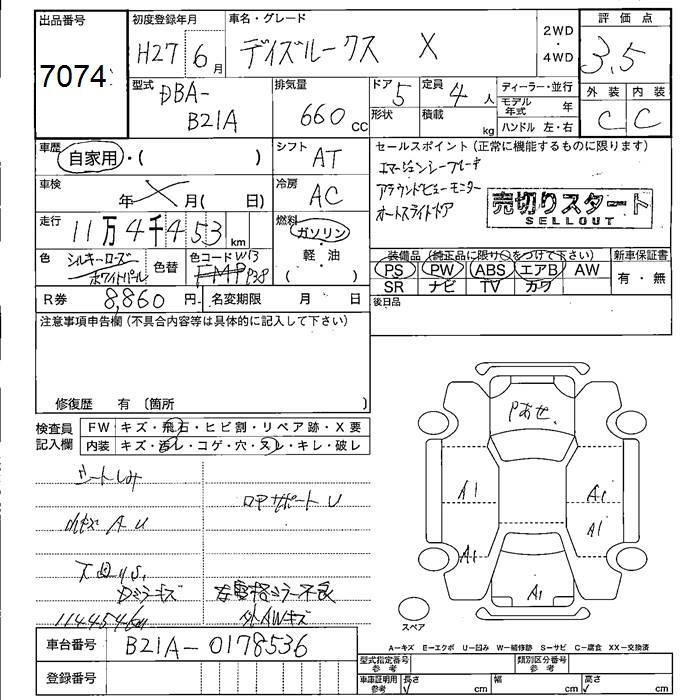 出品番号
7074
初度登録年月
H27 6月
車名・グレード
デイズルークス X
2WD
・
4WD
評価点
3.5
型式
DBA-
B21A
排気量
660 cc
ドア 5
形状
定員 4 人
積載 kg
ディーラー・並行
モデル年式 年
ハンドル 左・右
外装 内装
C C
車歴
自家用・( )
シフト
AT
セールスポイント(正常に機能するものに限ります)
エマージェンシーブレーキ
アラウンドビューモニター
オートスライドドア
売切りスタート
SELLOUT
車検
年 月( 日)
冷房
AC
走行
11万4千453 km
燃料
ガソリン
・
軽・油
( )
色
ホワイトパール
色替
色コード W13
R券
8,860 円
名変期限 月 日
装備品(純正品に限り○をつけて下さい)
PS PW ABS エアB AW
SR ナビ TV カワ
新車保証書
有・無
後日品
注意事項申告欄(不具合内容等は具体的に記入して下さい)
修復歴 有〔箇所 〕
検査員
記入欄
FW キズ・飛石・ヒビ割・リペア跡・X要
内装 キズ・汚レ・コゲ・穴・スレ・キレ・破レ
シートしみ
ロアサポートU
AU
Dミラーキズ
ミラー不良
114454km
AWキズ
Pあせ
A1
A1
A1
A1
A1
スペア
A-キズ E-エクボ U-凹み W-補修跡 S-サビ C-腐食 XX-交換済
車台番号
B21A-0178536
登録番号
型式指定番号
参考
類別区分番号
参考
車庫証明用
参考
長さ cm
幅 cm
高さ cm